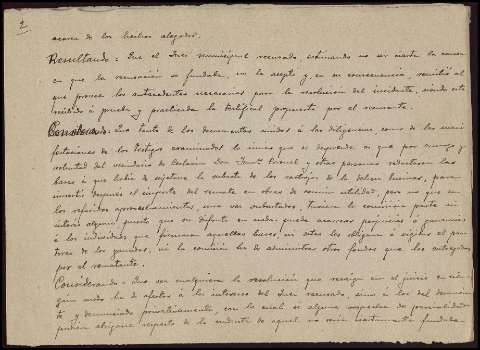 2
acerca de los hechos alegados.
Resultando: Que el Juez municipal recusado, estimando no ser cierta la causa
en que la recusación se fundaba, no la aceptó y, en su consecuencia, remitió al
que provee los antecedentes necesarios para la resolución del incidente, siendo este
recibido á prueba y practicada la testifical propuesta por el recusante.
Considerando: Que tanto de los documentos unidos á las diligencias como de las mani-
festaciones de los testigos examinados lo único que se desprende es que por encargo y
voluntad del vecindario de Don y otras personas redactaron las
bases á que había de sujetarse la subasta de los rastrojos de la para
invertir después el importe del remate en obras de común utilidad, pero no que en
los referidos aprovechamientos, una vez subastados, tuviera la comisión parte ni
interés alguno puesto que su disfrute en nada puede acarrear perjuicios ó ganancias
á los individuos que formaron aquellas bases, ni estas les obligan á vigilar el pas-
toreo de los ganados, ni la comisión ha de administrar otros fondos que los entregados
por el rematante.
Considerando: Que sea cualquiera la resolución que recaiga en el juicio en nin-
gún modo ha de afectar á los intereses del Juez recusado, sino á los del denuncian-
te y denunciado privativamente, con lo cual si alguna sospecha de parcialidad
pudiera abrigarse respecto de la conducta de aquel no sería ciertamente fundada